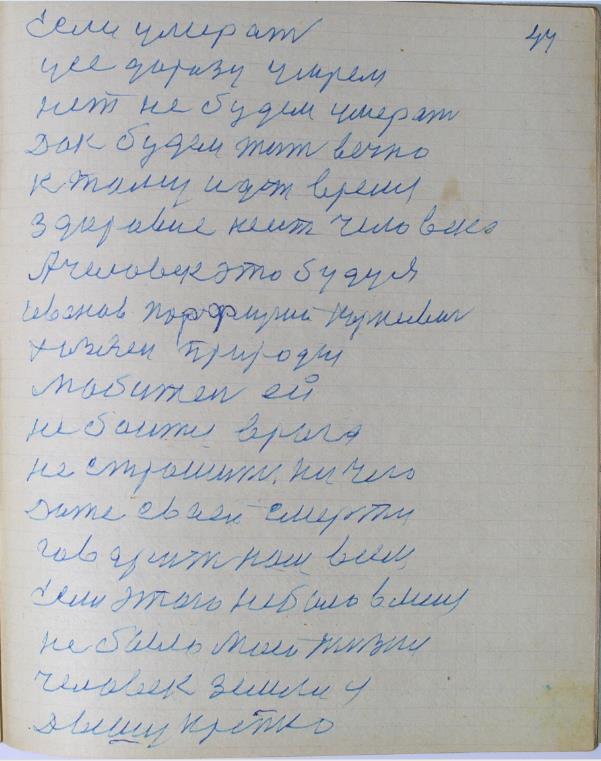 44
Если умерат
усе доразу умрем
нет не будем умерат
Дак будем жит вечно
к тому идет время
здоровие неит человека
А человек это буду я
Иванов Порфирий Корневич
хозяен природы
любител ей
не боитя врага
не страшит ничего
Даже своей смерти
говарит нам всем
Если этого небыло вмени
не было моей жизни
человек земли я
Двешу крепко